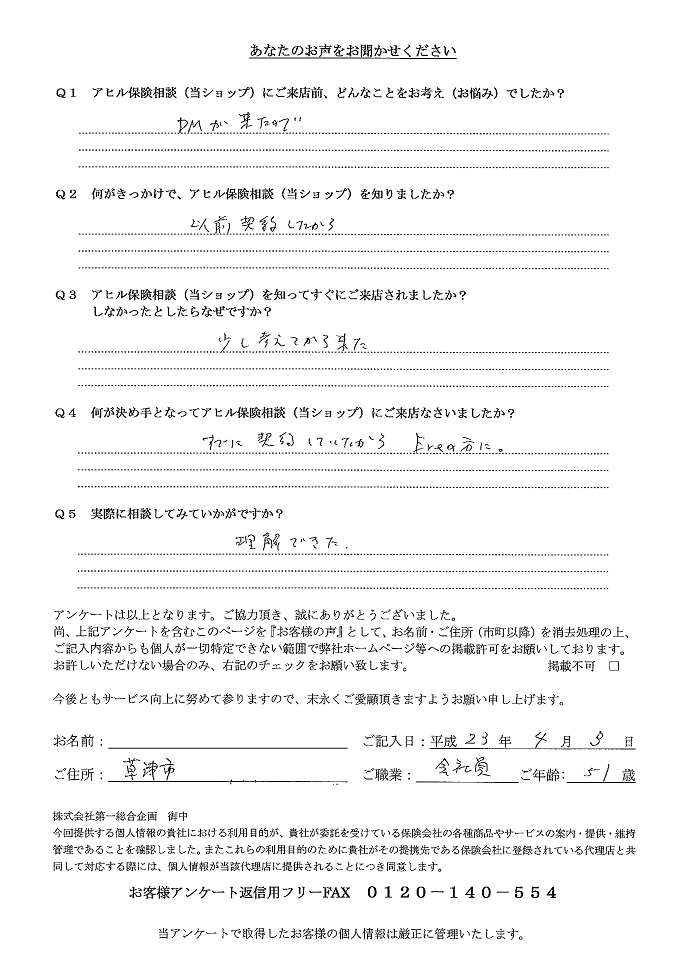 あなたのお声をお聞かせください
Q1 アヒル保険相談（当ショップ）にご来店前、どんなことをお考え（お悩み）でしたか？
DMが来たので
Q2 何がきっかけで、アヒル保険相談（当ショップ）を知りましたか？
以前契約したから
Q3 アヒル保険相談（当ショップ）を知ってすぐにご来店されましたか？
しなかったとしたらなぜですか？
少し考えてから来た
Q4 何が決め手となってアヒル保険相談（当ショップ）にご来店なさいましたか？
すでに契約していたから
Q5 実際に相談してみていかがですか？
理解できた.
アンケートは以上となります。ご協力頂き、誠にありがとうございました。
尚、上記アンケートを含むこのページを『お客様の声』として、お名前・ご住所（市町以降）を消去処理の上、
ご記入内容からも個人が一切特定できない範囲で弊社ホームページ等への掲載許可をお願いしております。
お許しいただけない場合のみ、右記のチェックをお願い致します。 掲載不可 □
今後ともサービス向上に努めて参りますので、末永くご愛顧頂きますようお願い申し上げます。
お名前： ご記入日：平成 23 年 4 月 9 日
ご住所： 草津市 ご職業： 会社員 ご年齢: 51 歳
株式会社第一総合企画 御中
今回提供する個人情報の貴社における利用目的が、貴社が委託を受けている保険会社の各種商品やサービスの案内・提供・維持
管理であることを確認しました。またこれらの利用目的のために貴社がその提携先である保険会社に登録されている代理店と共
同して対応する際には、個人情報が当該代理店に提供されることにつき同意します。
お客様アンケート返信用フリーFAX 0120－140－554
当アンケートで取得したお客様の個人情報は厳正に管理いたします。